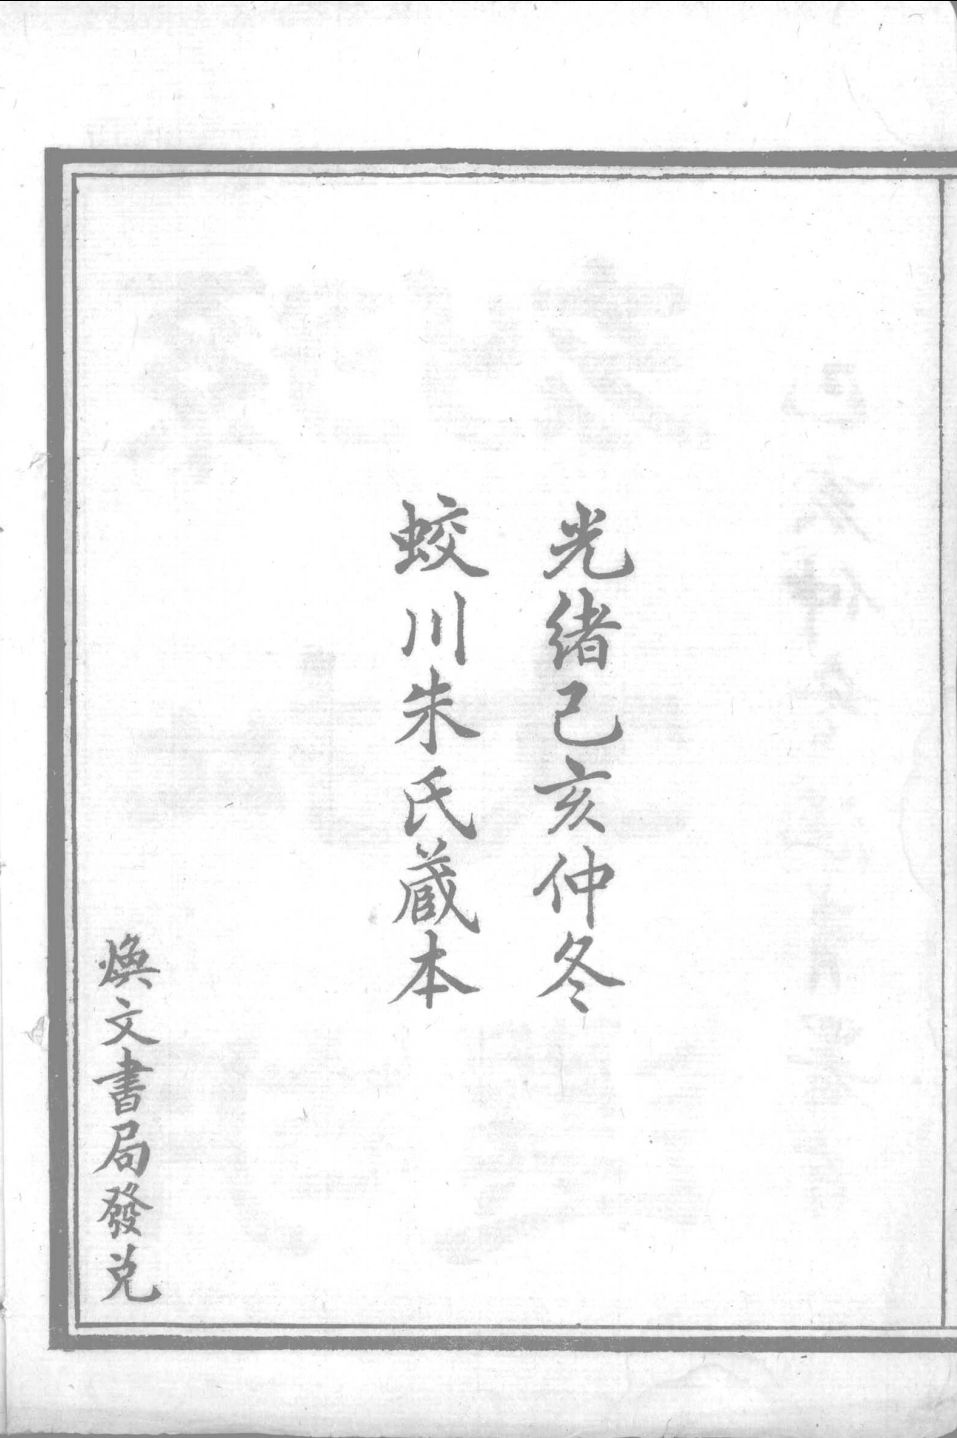 光緒己亥仲冬
蛟川朱氏蔵本
煥文書局發兌